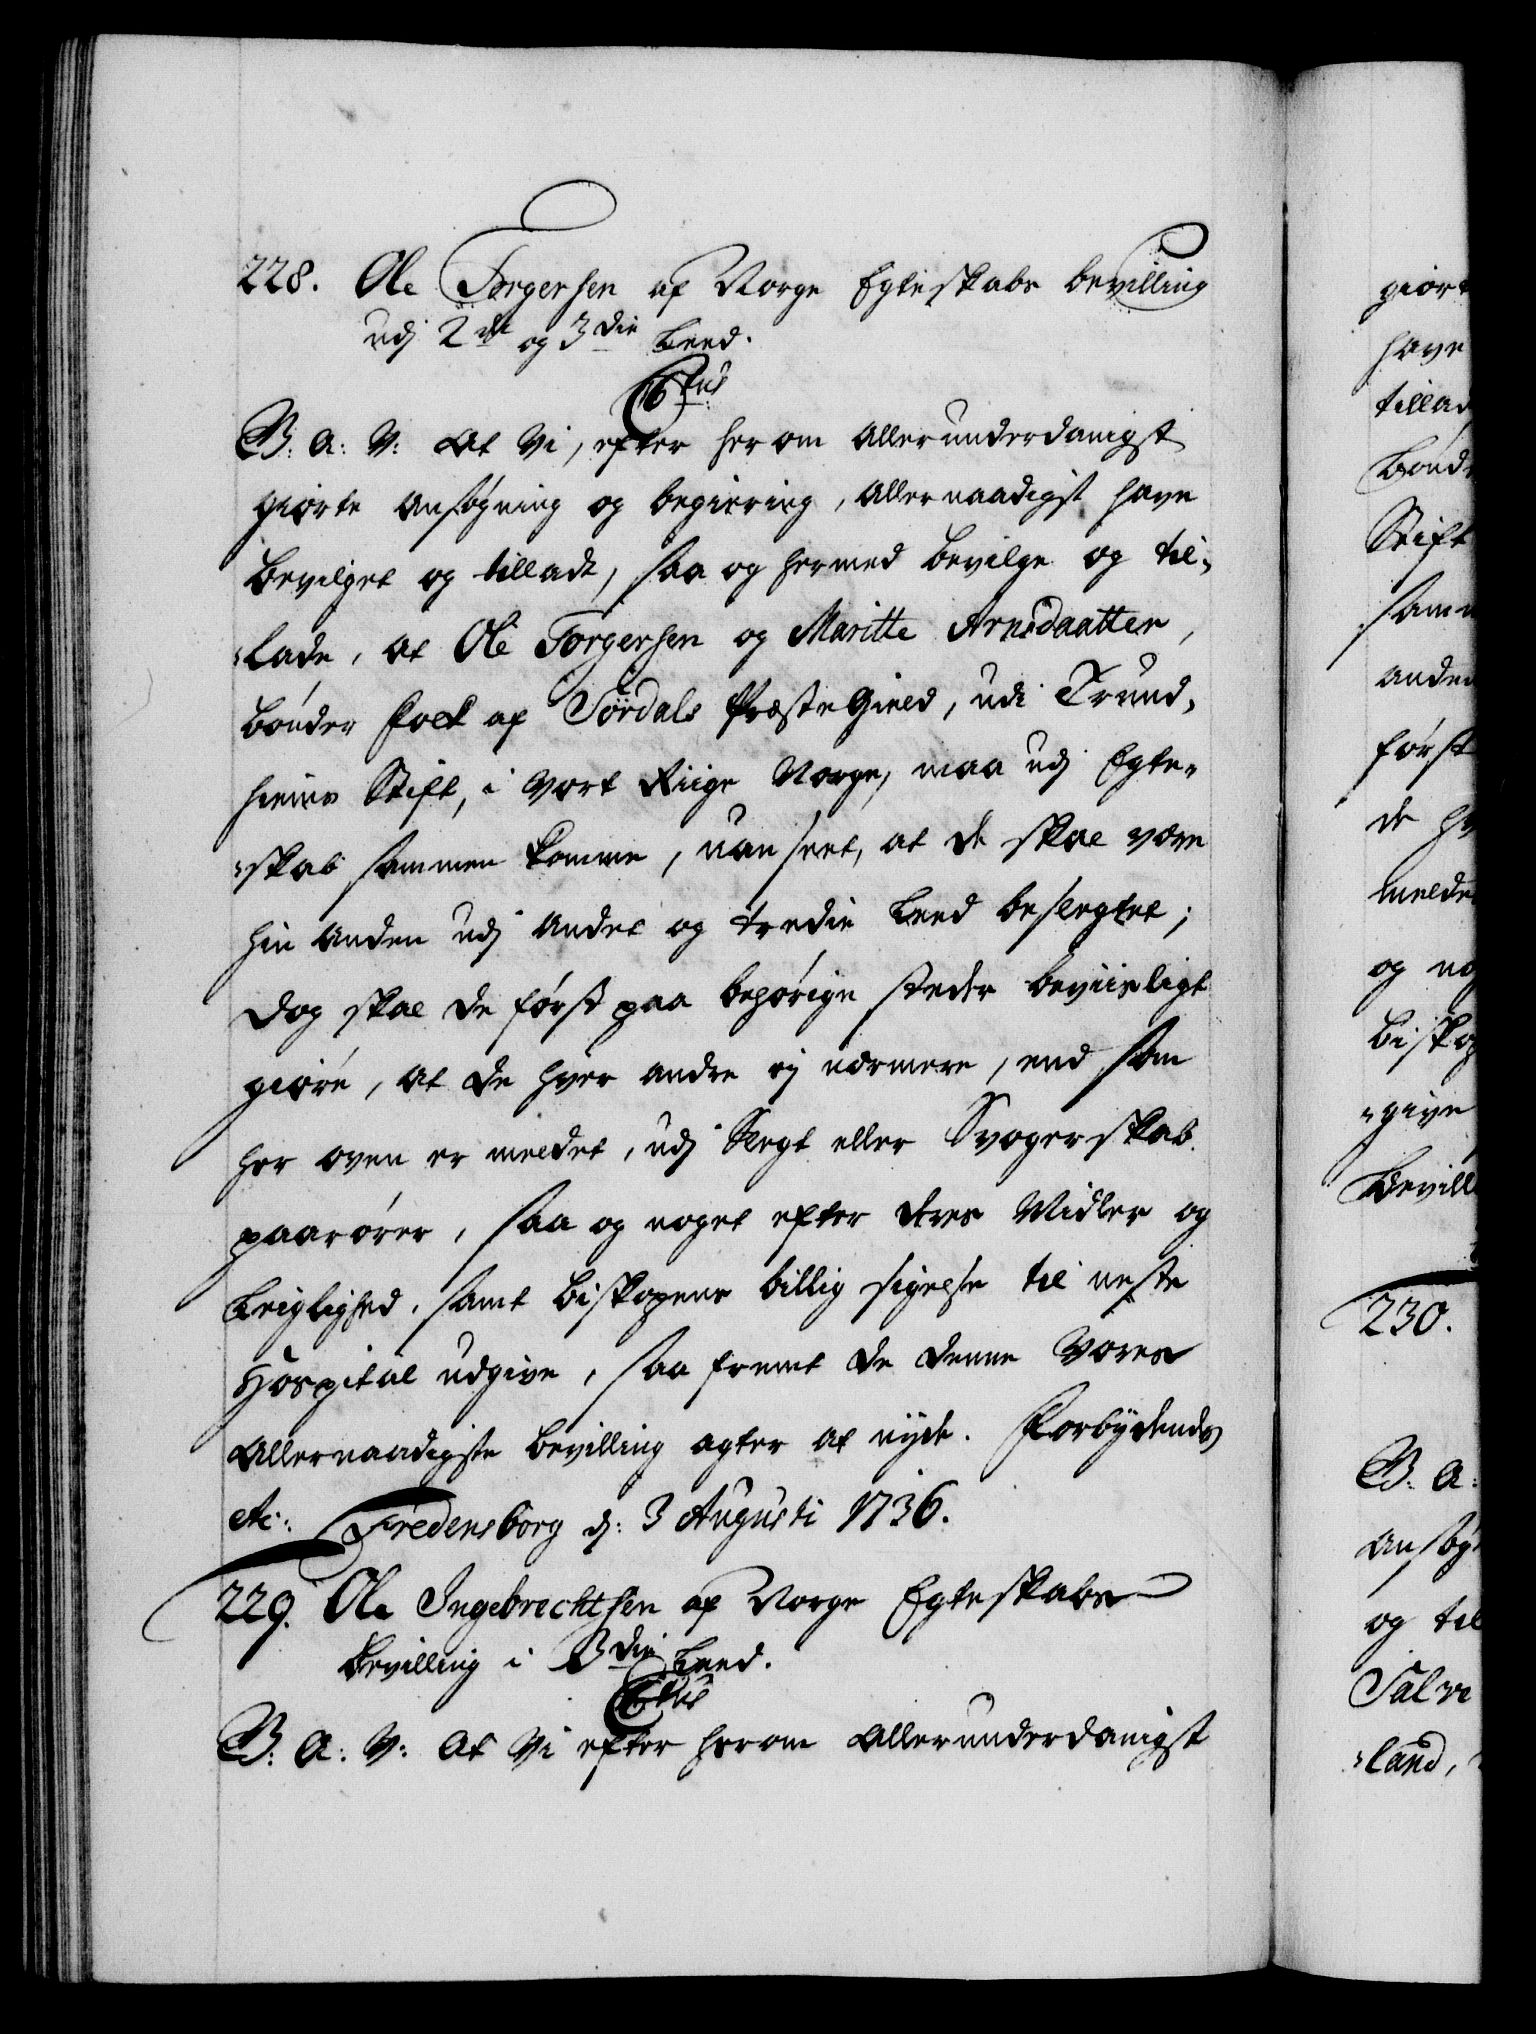 228. Ole Torgersen af Norge Egteskabs bevilling
udj 2de og 3die Leed.
C6tus
G: A: V: At Vi, efter herom allerunderdanigst
giorte Ansøgning og begiering, allernaadigst have
bevilget og tilladt, saa og hermed bevilge og til-
lade, at Ole Torgersen og Maritte Arnsdaatter,
bønder Folk af Sørdals Præste Gield, udi Trund-
hiems Stift, i Vort Riige Norge, maa udj Egte-
skab sammen komme, uanseet, at de skal være
hin anden udj andet og tredie Leed beslegtet;
dog skal de først paa behørige steder beviisligt
giøre, at de hver andre ej nærmere, end som
her oven er meldet, udj Slegt eller Svogerskab
paarører, saa og noget efter deres Midler og
Leiglighed, samt biskopens billig sigelse til neste
Hospital udgive, saa fremt de denne Vores
allernaadigste bevilling agter at nyde. Forbydendes
etc: Fredensborg d: 3 Augusti 1736.
229. Ole Ingebrechtsen af Norge Egteskabs
bevilling i 3die Leed.
C6tus
G: A: V: At Vi efter herom allerunderdanigst
giort
have
tillad
bønde
Stift
samm
anden
først
de hv
melde
og no
bisko
give
bevill
230.
G: A:
ansøg
og til
Salve
land,